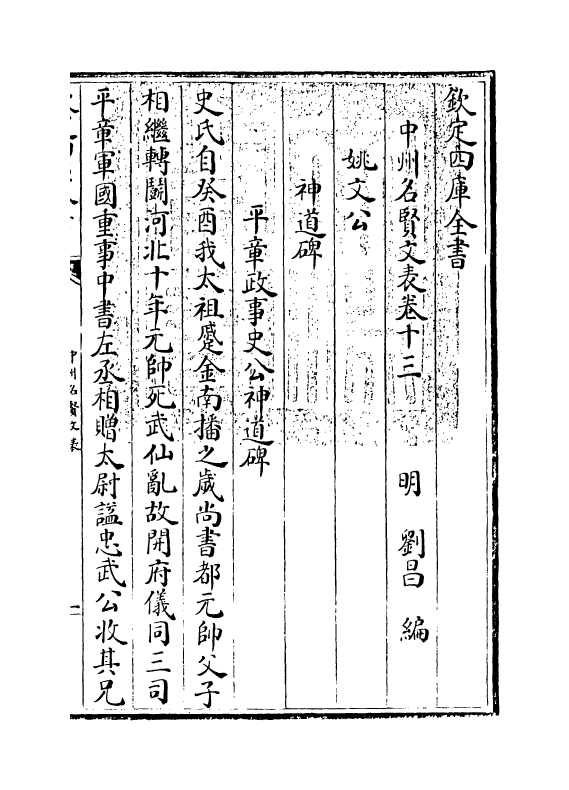 欽定四庫全書
中州名賢文表卷十三
明 劉昌 編
姚文公
神道碑
平章政事史公神道碑
史氏自癸酉我太祖蹙金南播之歲尚書都元帥父子
相繼轉鬭河北十年元帥死武仙亂故開府儀同三司
平章軍國重事中書左丞相贈太尉諡忠武公收其兄
中州名賢文表
一